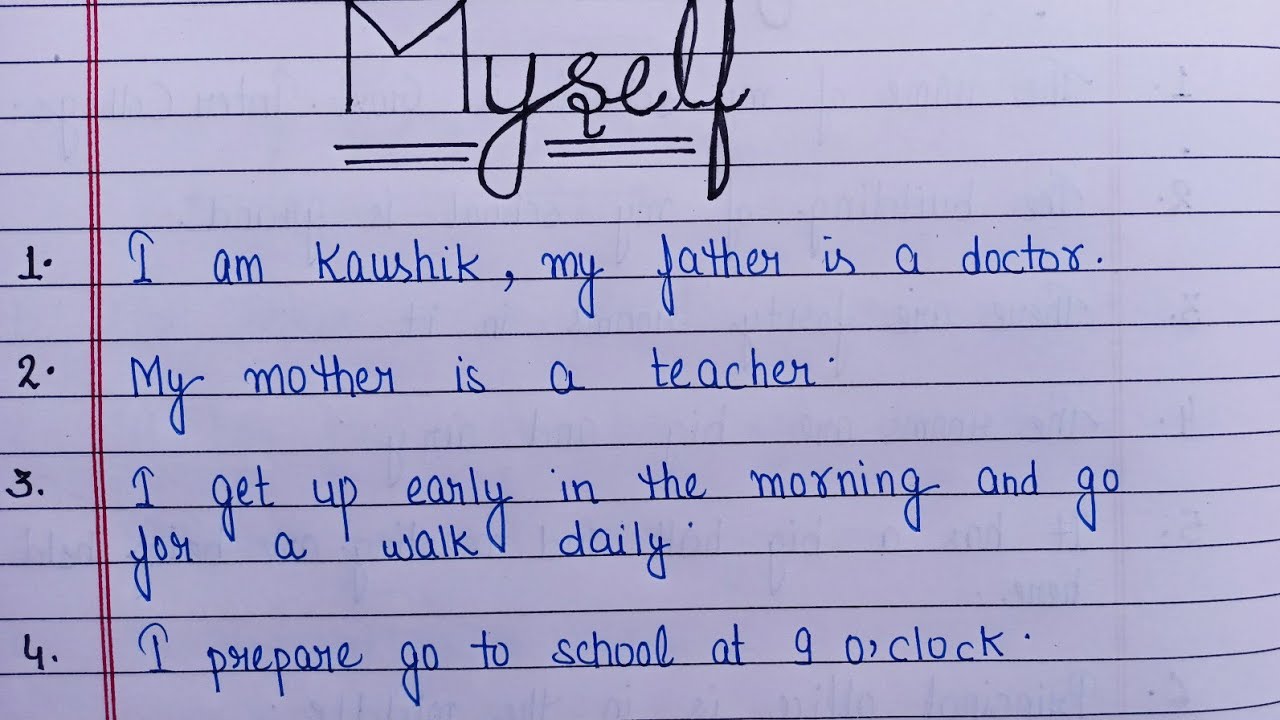 Myself
1. I am Kaushik, my father is a doctor.
2. My mother is a teacher.
3. I get up early in the morning and go
for a walk daily.
4. I prepare go to school at 9 o,clock.